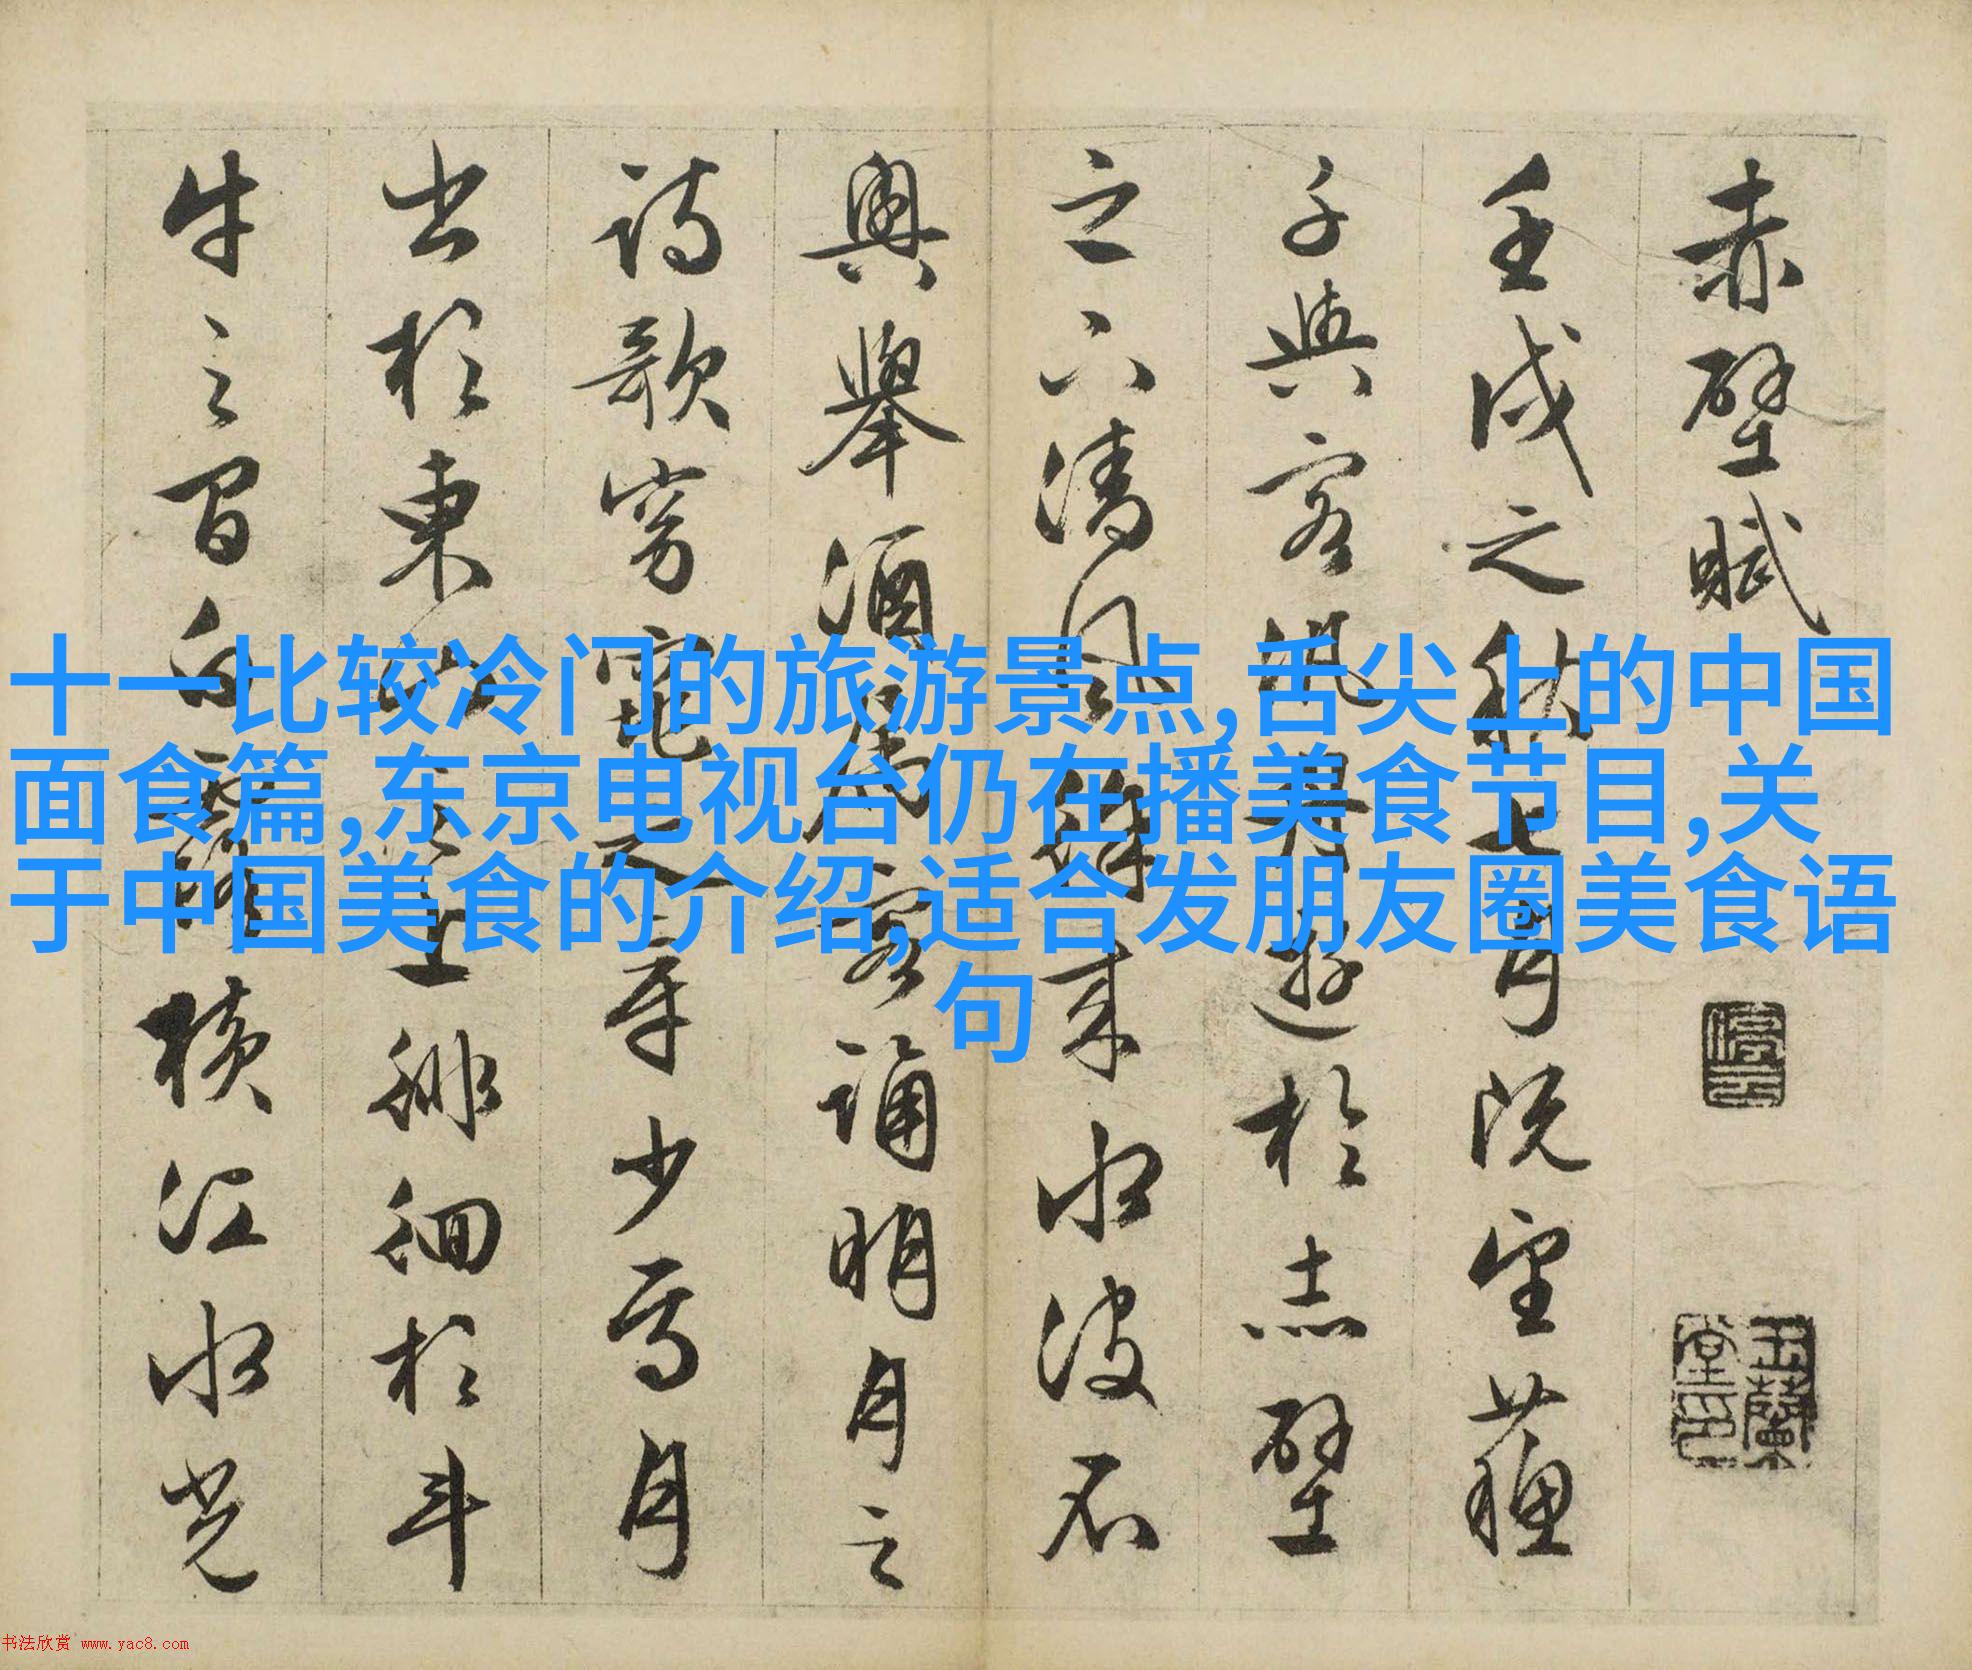 赤壁賦
壬戌之秋七月既望蘇
子與客泛舟遊於赤壁
之下清風徐來水波不
興舉酒屬客誦明月之
詩歌窈窕之章少焉月
出於東山之上徘徊於斗
牛之間白露橫江水光
十一比较冷门的旅游景点,舌尖上的中国
面食篇,东京电视台仍在播美食节目,关
于中国美食的介绍,适合发朋友圈美食语
句
书法欣赏 www.yac8.com